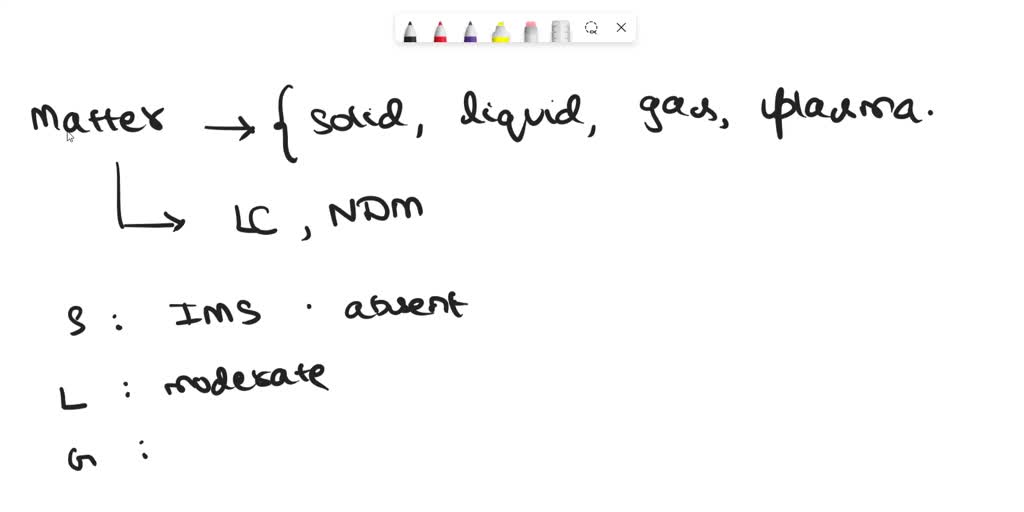 Matter → { solid, liquid, gas, plasma.
LC, NDM
S : IMS . absent
L : moderate
G :